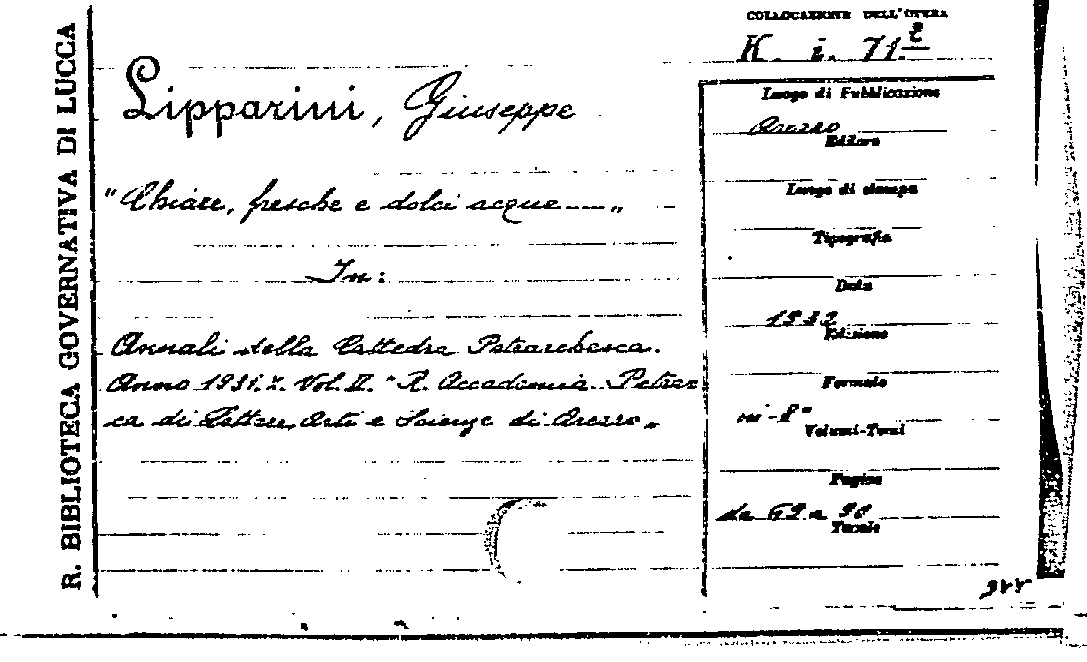 R. BIBLIOTECA GOVERNATIVA DI LUCCA
COLLOCAZIONE DELL'OPERA
K. i. 71.
Lipparini, Giuseppe
"Chiare, fresche e dolci acque — „
In:
Annali della Cattedra Petrarchesca.
Anno 1931. Vol. II. "R. Accademia Petrar
ca di Lettere, Arti e Scienze di Arezzo„
Luogo di Pubblicazione
Arezzo
Editore
Luogo di stampa
Tipografia
Data
Edizione
Formato
in-8°
Volumi-Tomi
Pagine
Tavole